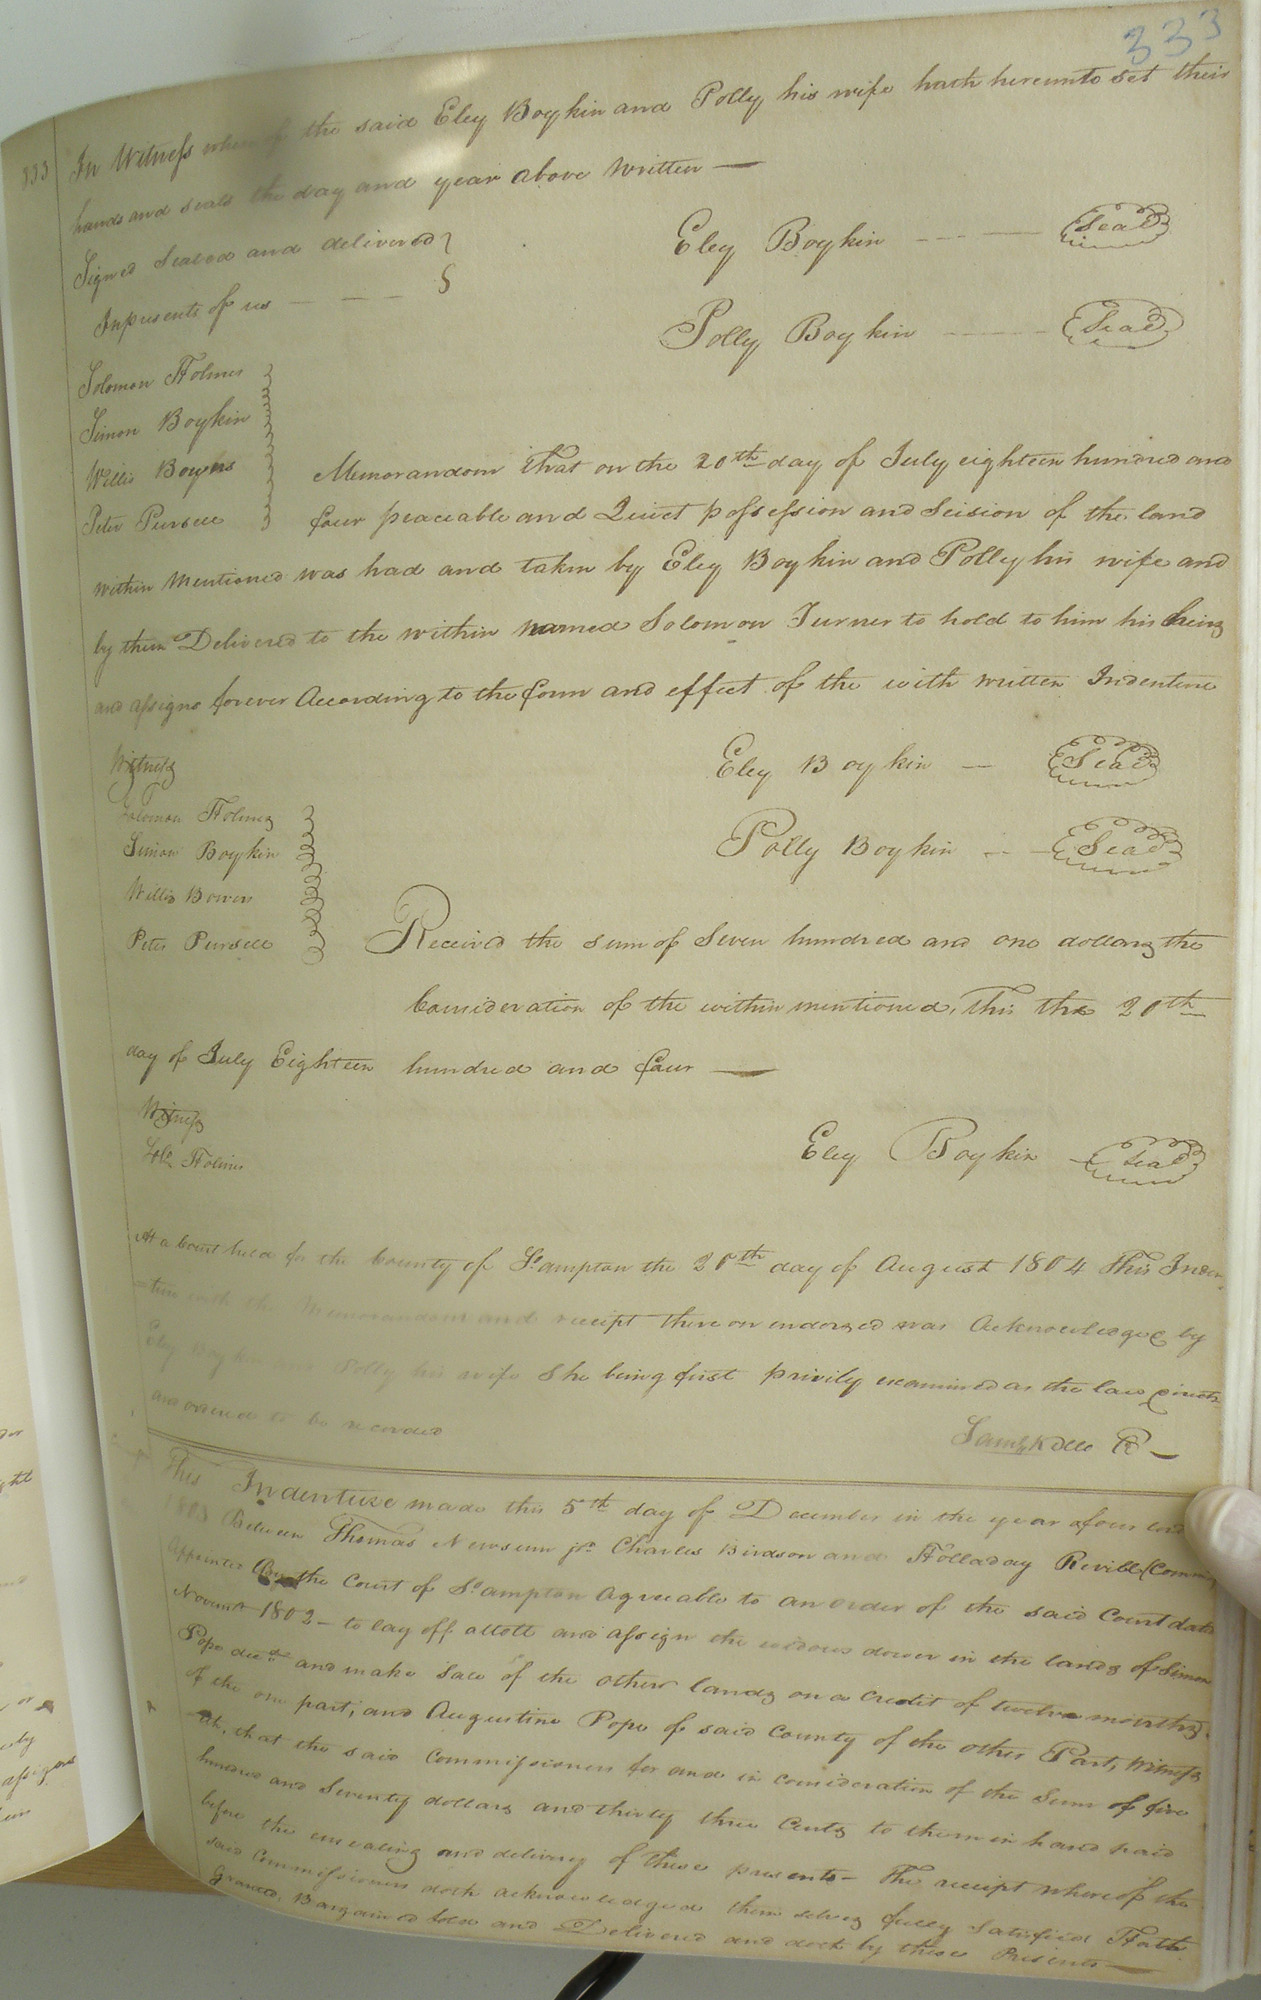 333
333
In Witness whereof the said Eley Boykin and Polly his wife hath hereunto set their
hands and seals the day and year above written —
Signed Sealed and delivered
Inpresents of us — — —
Eley Boykin — — — Seal
Polly Boykin — — — Seal
Solomon Holmes
Simon Boykin
Willis Bowers
Peter Pursell
Memorandom that on the 20th day of July eighteen hundred and
four peaceable and Quiet possession and Seision of the land
within Mentioned was had and taken by Eley Boykin and Polley his wife and
by them Delivered to the within named Solomon Turner to hold to him his heirs
and assigns forever According to the form and effect of the with written Indenture
Witness
Eley Boykin — Seal
Solomon Holmes
Polly Boykin — Seal
Simon Boykin
Willis Bowers
Peter Pursell
Received the sum of Seven hundred and one dollars the
Consideration of the within mentioned, This the 20th
day of July Eighteen hundred and four —
Witness
Eley Boykin — Seal
Sol. Holmes
At a Court held for the County of S°ampton the 20th day of August 1804 This Inden-
-ture with the Memorandum and receipt thereon endorsed was Acknowledged by
Eley Boykin and Polly his wife She being first privily examined as the law directs
and ordered to be recorded
Saml Kello C —
This Indenture made this 5th day of December in the year of our lord
1803 Between Thomas Newsum jr. Charles Birdson and Holladay Revill (Commis
Appointed By the Court of S°ampton Agreeable to an order of the said Court date
Novemr 1802 — to lay off allott and assign the widows dower in the lands of Simon
Pope decd. and make Sale of the other lands on a Credit of twelve months
of the one part; and Augustine Pope of said County of the other Part, Witness
eth, that the said Commissioners for and in consideration of the Sum of five
hundred and Seventy dollars and thirty three Cents to them in hand paid
before the ensealing and delivery of these presents — The receipt whereof the
said Commissioners doth acknowledged them selves fully Satisfied Hath
Granted, Bargained Sold and Delivered and doth by these Presents —